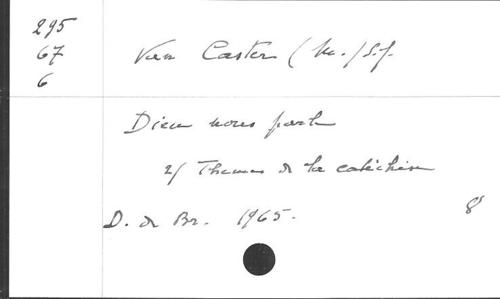 295
67
6
Van Caster (M.) S.J.
Dieu nous parle
2/ Themes de la catéchèse
D. de Br. 1965. 8°